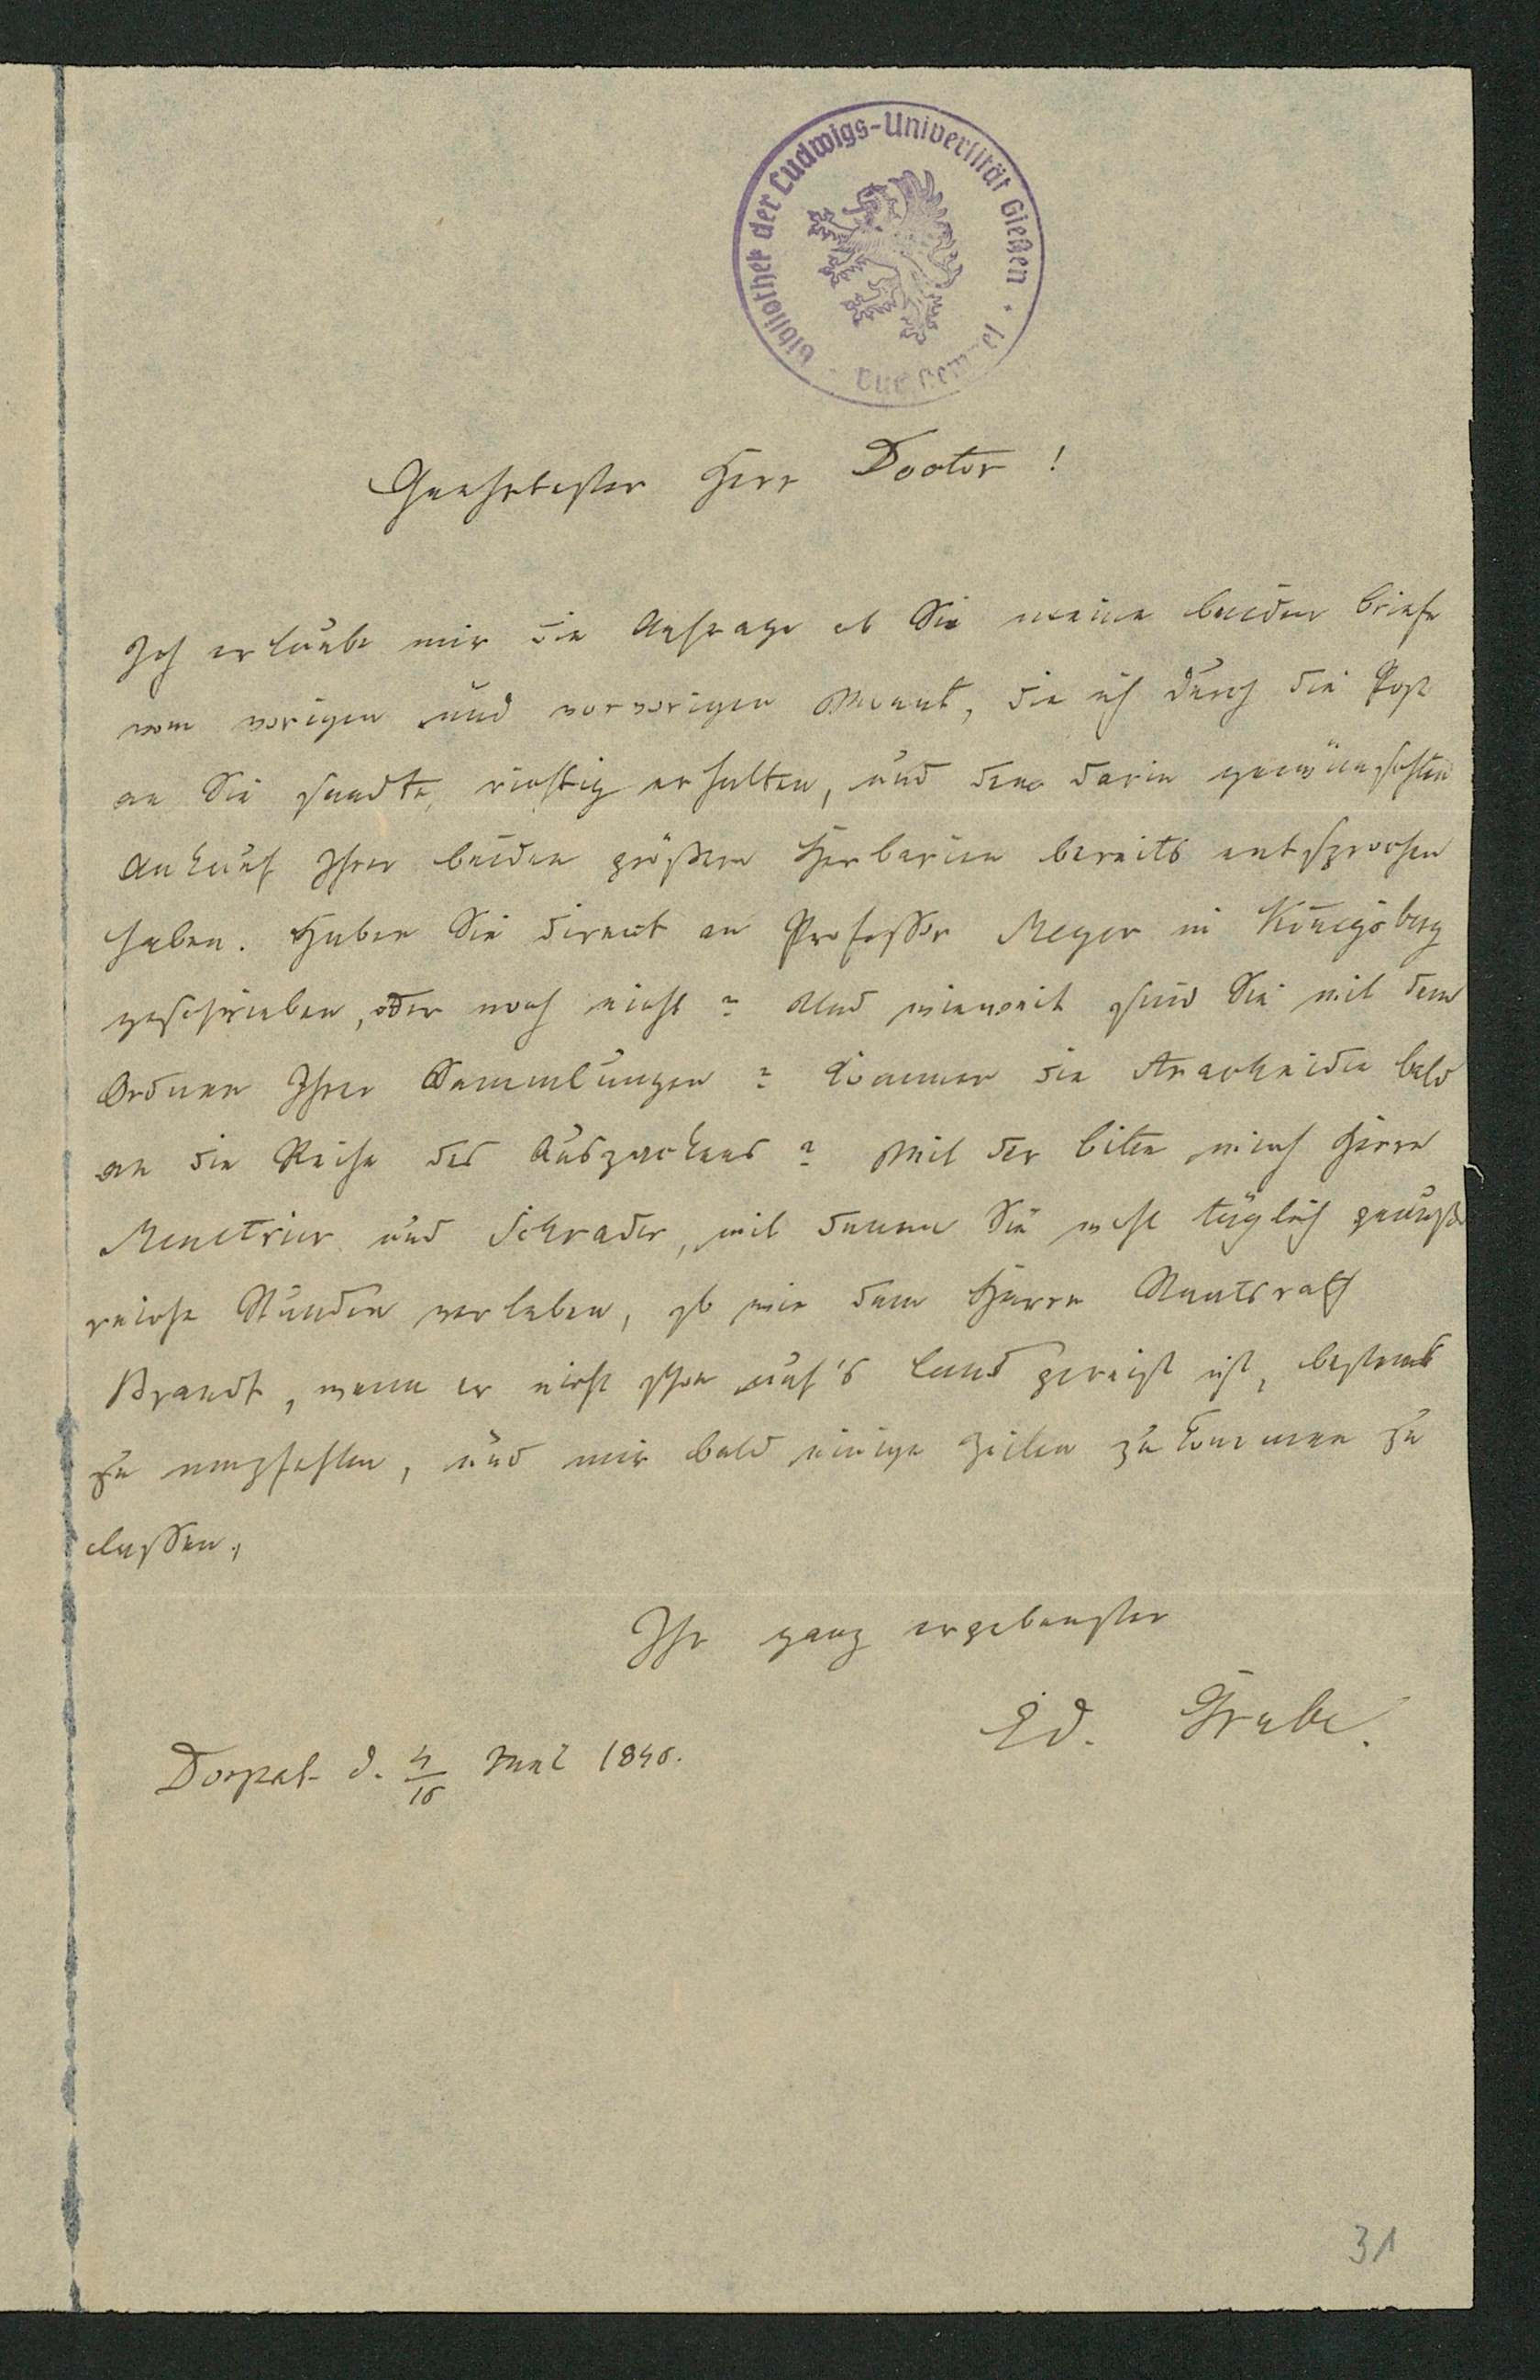 Bibliothek der Ludwigs-Universität Gießen
Geehrtester Herr Doctor!
Ich erlaube mir die Anfrage ob Sie meine beiden Briefe
vom vorigen und vorvorigen Monat, die ich durch die Post
an Sie sandte, richtig erhalten, und dem darin gewünschten
Ankauf Ihrer beiden größern Herbarien bereits entsprochen
haben. Haben Sie direct an Professor Meyer in Königsberg
geschrieben, oder noch nicht? Und wieweit sind Sie mit dem
Ordnen Ihrer Sammlungen? Kommen die Arachniden bald
an die Reihe des Auspackens? Mit der Bitte, mich Herrn
Menetrier und Schrader, mit denen Sie wohl täglich genuß-
reiche Stunden verleben, so wie dem Herrn Staatsrath
Brandt, wenn er nicht schon auf's Land gereist ist, bestens
zu empfehlen, und mir bald einige Zeilen zukommen zu
lassen,
Ihr ganz ergebenster
Ed. Grube.
Dorpat d. 4/16 Mai 1846.
31